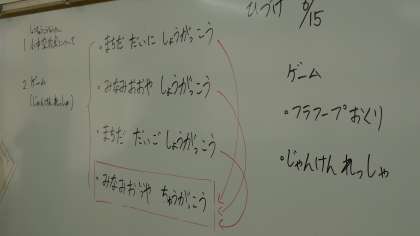 ひづけ 6/15
1
2. ゲーム
(じゃんけんれっしゃ)
・まちだ だいに しょうがっこう
・みなみおおや しょうがっこう
・まちだ だいご しょうがっこう
・みなみおおや ちゅうがっこう
ゲーム
・フラフープおくり
・じゃんけん れっしゃ